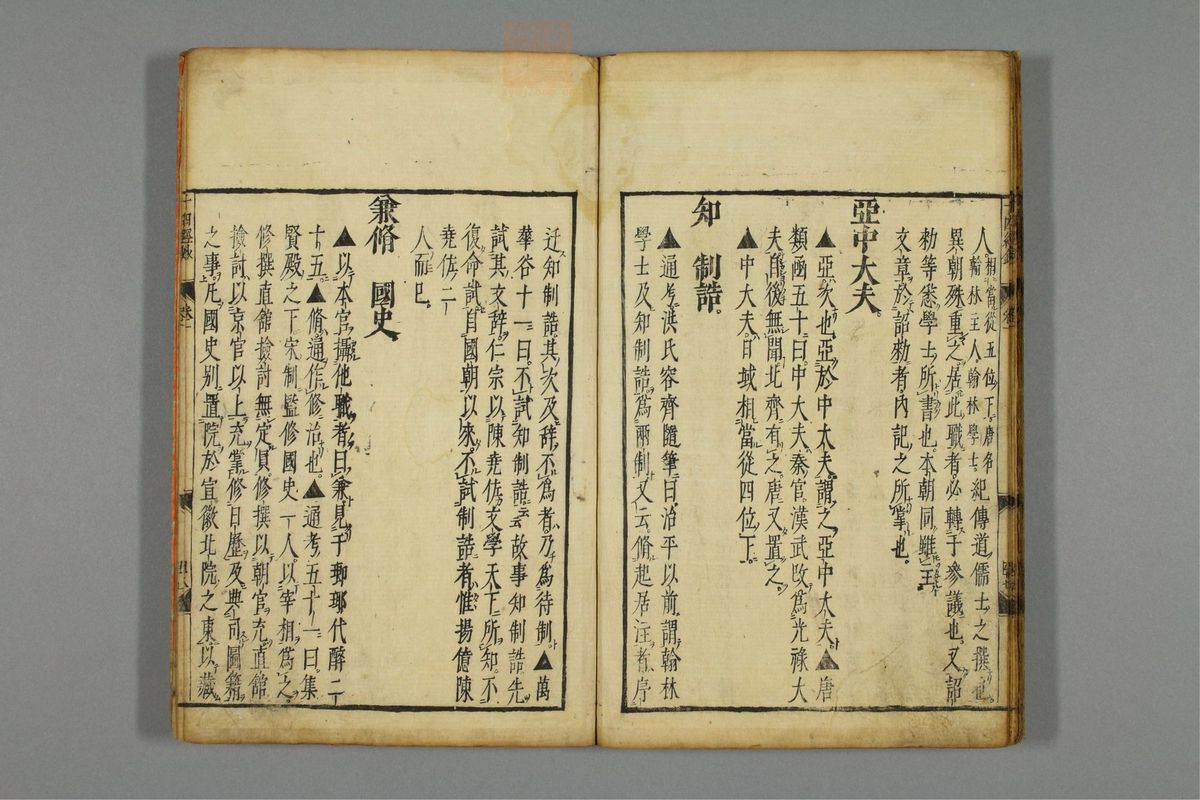 人相當從五位下唐名
翰林主人翰林學士紀傳道儒士之撰也
異朝殊重之居此職者必轉于參議也又詔
勑等悉學士所書也本朝同雖王
文章於詔勑者內記之所掌也
亞中大夫
▲亞次也亞於中大夫謂之亞中大夫▲唐
類函五十曰中大夫秦官漢武改爲光祿大
夫自後無聞北齊有之唐又置之
▲中大夫日域相當從四位下
知制誥
▲通考洪氏容齊隨筆曰治平以前謂翰林
學士及知制誥爲兩制又云脩起居注者序
迁知制誥其次及辞不爲者乃爲待制▲萬
華谷十一曰不試知制誥云故事知制誥先
試其文辞仁宗以陳堯佐文學天下所知不
復命試自國朝以來不試制誥者惟揚億陳
堯佐二
人而已
兼脩國史
▲以本官攝他職者曰兼見于瑯琊代醉二
十五▲脩通作修治也▲通考五十一曰集
賢殿之下宋制監修國史一人以宰相爲之
修撰直館撿討無定員修撰以朝官充直館
撿討以京官以上充掌修日歷及典司圖籍
之事凡國史別置院於宣徽北院之東以藏